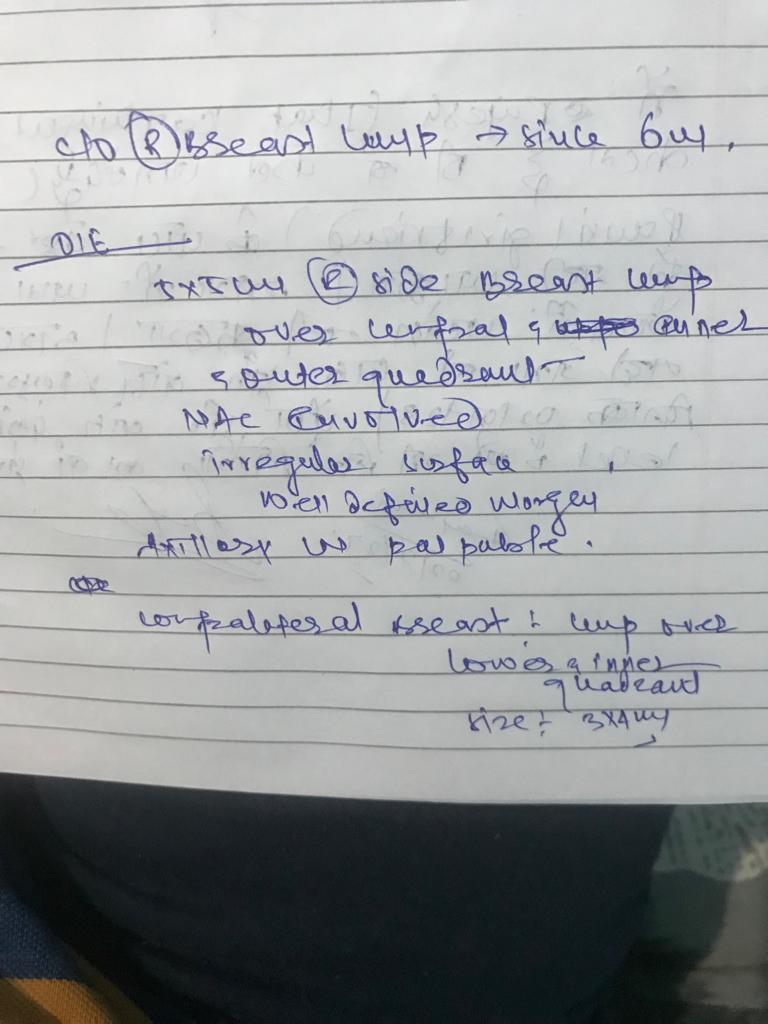 c/o (R) Breast lump → since 6m.
O/E
5x5cm (R) side Breast lump
over central & inner
& outer quadrant
NAC involved
irregular surface,
well defined margin
Axillary LN palpable.
contralateral Breast : lump over
lower & inner
quadrant
size : 3x4cm